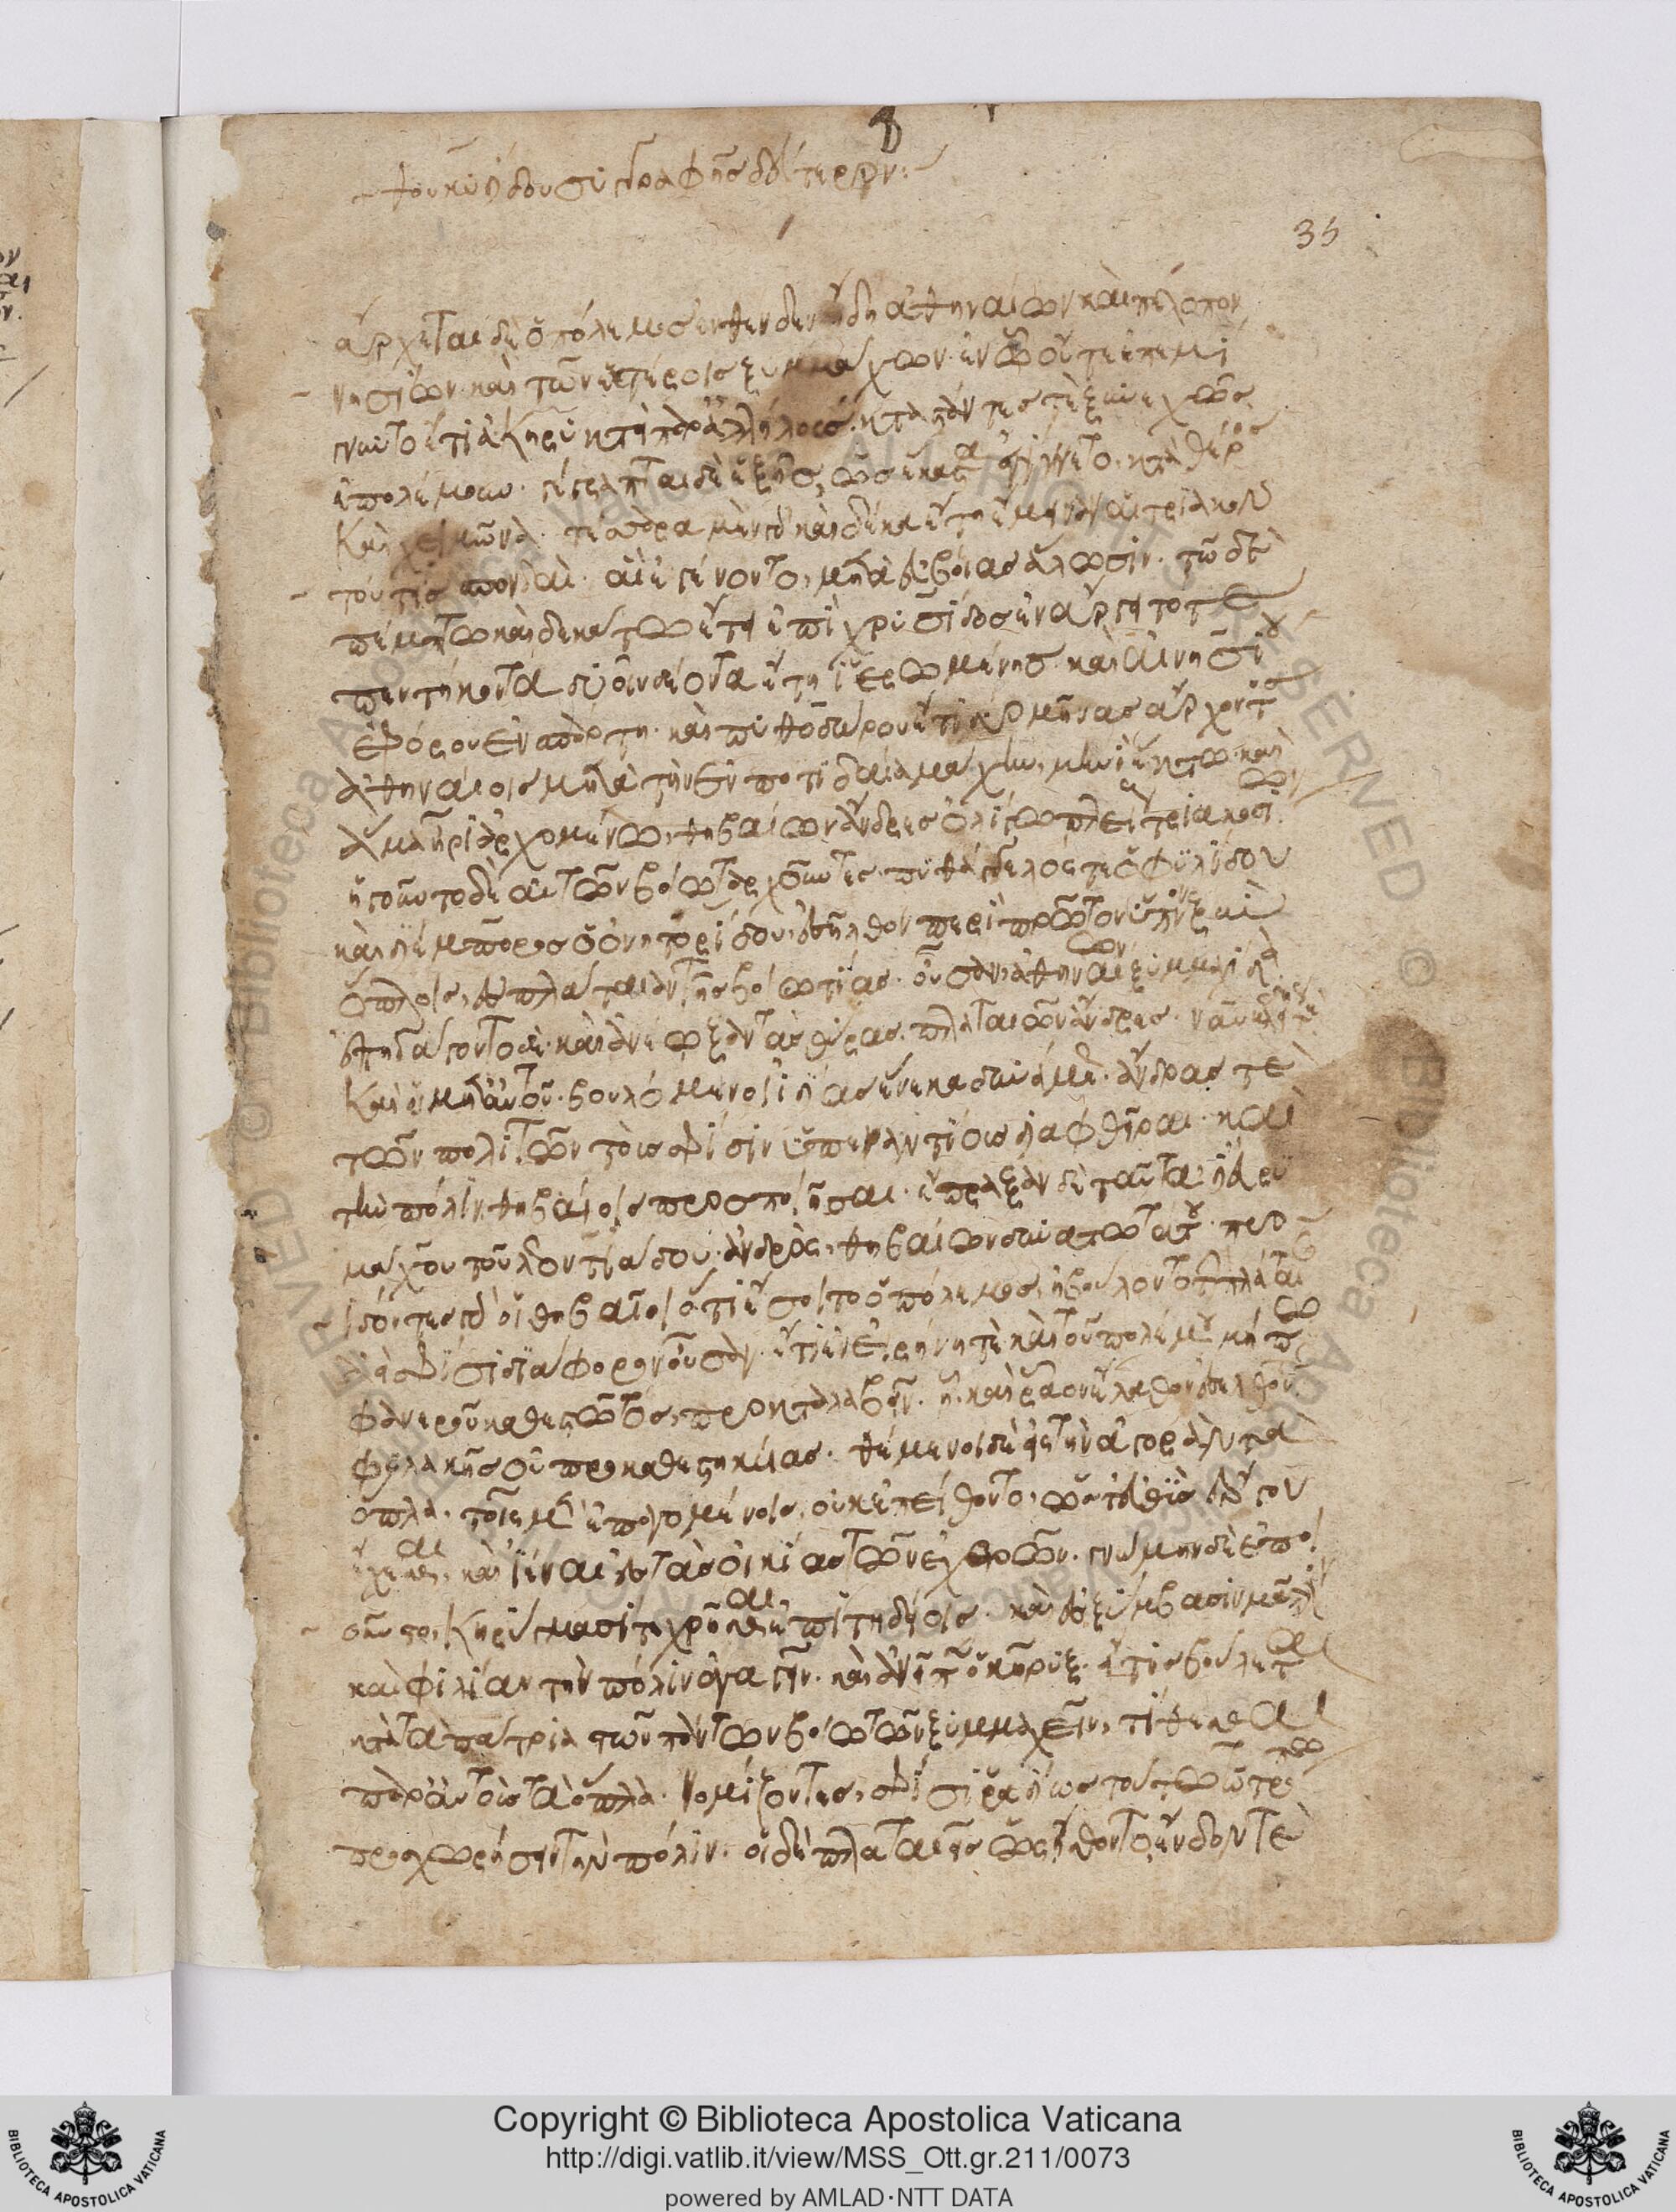 8
θουκυδίδου συγγραφῆς δευτέρον:
35
ἄρχεται δὲ ὁ πόλεμος ἐνθένδε ἤδη ἀθηναίων καὶ πελοπον
νησίων. καὶ τῶν ἑκατέροις ξυμμάχων. ἐν ᾧ οὔτε ἐπεμί
γνυντο ἔτι ἀκηρυκτὶ παρ' ἀλλήλους. καταστάντες τὲ ξυνεχῶς
ἐπολέμουν. γέγραπται δὲ ἑξῆς, ὡς ἕκαστα ἐγίγνετο. κατὰ θέρος
καὶ χειμῶνα. τέσσαρα μὲν γὰρ καὶ δέκα ἔτη ἐνέμειναν αἱ τριακον
τούτεις σπονδαὶ. αἳ ἐγένοντο, μετὰ εὐβοίας ἅλωσιν. τῶ δὲ
πέμπτω καὶ δεκάτω ἔτει ἐπὶ χρυσίδος ἐν ἄργει τότε
πεντήκοντα δυοῖν δέοντα ἔτη ἱερωμένης. καὶ αἰνησίου
ἐφόρου ἐν σπάρτη. καὶ πυθοδώρου ἔτι δύο μῆνας ἄρχοντος
ἀθηναίοις μετὰ τὴν ἐν ποτιδαία μάχην, μηνὶ ἕκτω. καὶ
ἅμα ἦρι ἀρχομένω, θηβαίων ἄνδρες ὀλίγω πλείους τριακοσίων
ἡγοῦντο δὲ αὐτῶν βοιωταρχοῦντες. πυθάγγελός τε ὁ φυλείδου
καὶ διέμπορος ὁ ὀνητορίδου. ἐσῆλθον περὶ πρῶτον ὕπνον ξὺν
ὅπλοις, ἐς πλάταιαν τῆς βοιωτίας. οὖσαν ἀθηναίων ξυμμαχίδα.
ἐπηγάγοντο δὲ. καὶ ἀνέωξαν τὰς πύλας. πλαταιῶν ἄνδρες. ναυκλείδης τε
καὶ οἱ μετ' αὐτοῦ. βουλόμενοι ἰδίας ἕνεκα δυνάμεως. ἄνδρας τὲ
τῶν πολιτῶν τοὺς σφίσιν ὑπεναντίους διαφθεῖραι. καὶ
τὴν πόλιν θηβαίοις προσποιῆσαι. ἔπραξαν δὲ ταῦτα δι' εὐρυ
μάχου τοῦ λεοντιάδου. ἀνδρὸς, θηβαίων δυνατωτάτου. προ
ϊδόντες γὰρ οἱ θηβαῖοι ὅτι ἔσοιτο ὁ πόλεμος, ἠβούλοντο τὴν πλάταιαν
ἀεὶ σφίσι διάφορον οὖσαν. ἔτι ἐν εἰρήνη τὲ καὶ τοῦ πολέμου μήπω
φανεροῦ καθεστῶτος, προκαταλαβεῖν. ἧ καὶ ῥᾶον ἔλαθον ἐσελθόντες
φυλακῆς οὐ προκαθεστηκυίας. θέμενοι δὲ ἐς τὴν ἀγορὰν τὰ
ὅπλα. τοῖς μὲν ἐπαγομένοις, οὐκ ἐπείθοντο, ὥστε εὐθὺς ἔργου
ἔχεσθαι, καὶ ἰέναι ἐς τὰς οἰκίας τῶν ἐχθρῶν. γνώμην δὲ ἐποι
οῦντο, κηρύγμασί τε χρῆσθαι ἐπιτηδείοις. καὶ ἐς ξύμβασιν μᾶλλον
καὶ φιλίαν τὴν πόλιν ἀγαγεῖν. καὶ ἀνεῖπεν ὁ κήρυξ. εἴ τις βούλεται
κατὰ τὰ πάτρια τῶν πάντων βοιωτῶν ξυμμαχεῖν, τίθεσθαι
παρ' αὐτοὺς τὰ ὅπλα. νομίζοντες, σφίσι ῥαδίως τούτω τῶ τρόπω
προσχωρήσειν τὴν πόλιν. οἱ δὲ πλαταιῆς ὡς ἤσθοντο ἔνδον τὲ